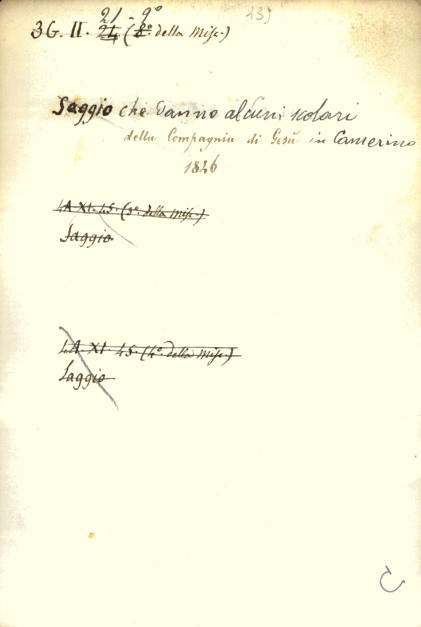 139
21 - 9º
3G. II. 24 (8º della Misc.)
Saggio che danno alcuni scolari
della Compagnia di Gesù in Camerino
1846
4A XI. 45. (3º della Misc.)
Saggio
4A. XI. 45. (4º della Misc.)
Saggio